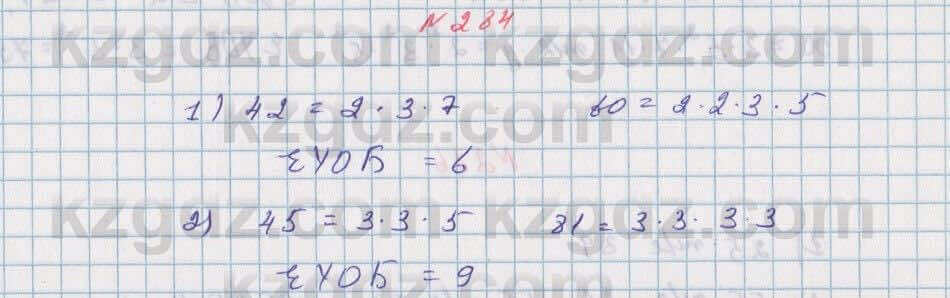 № 284
1) 42 = 2 · 3 · 7 60 = 2 · 2 · 3 · 5
ЕҮОБ = 6
2) 45 = 3 · 3 · 5 81 = 3 · 3 · 3 · 3
ЕҮОБ = 9
kzgdz.com kzgdz.com
kzgdz.com
kzgdz.com kzgdz.com
kzgdz.com